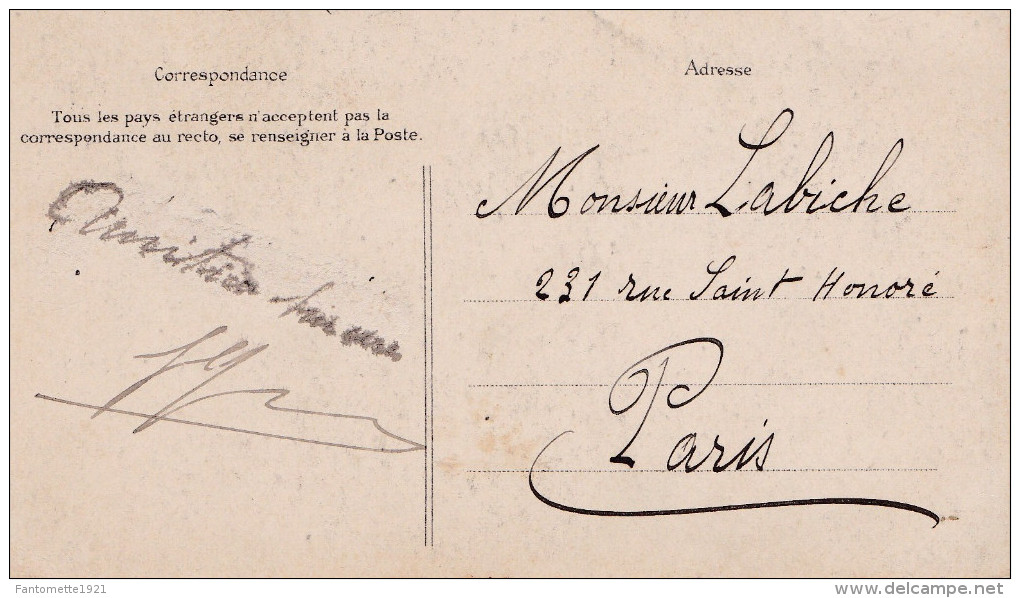 Correspondance
Tous les pays étrangers n'acceptent pas la
correspondance au recto, se renseigner à la Poste.
Adresse
Monsieur Labiche
231 rue Saint Honoré
Paris
Fantomette1921
www.delcampe.net